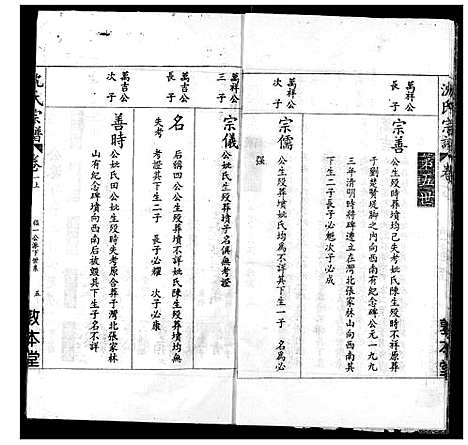 沈氏宗譜
第五世
萬祥公
長子
宗善
公生殁時葬墳均已失考姚氏生殁時不詳原葬
于劉楚贊堤腳之內向西南有紀念碑公元一九九
三年清明時將碑遷立在灣北張家林山向西南其
下生二子長子必魁次子必成
萬祥公
次子
宗儒
公生殁葬墳姚氏均為不詳其下生一子 名為必
強
萬祥公
三子
宗儀
公姚氏生殁葬墳子名俱無考證
萬吉公
長子
名
失考
后稱四公公生殁葬墳不詳姚氏陳生殁葬墳無
考證其下生二子 長子必耀 次子必康
萬吉公
次子
善時
公姚氏田公姚生殁時失考原合葬于灣北張家林
山有紀念碑墳向西南后被毀其下生子名不詳
沈氏宗譜
卷一上
五
敦本堂